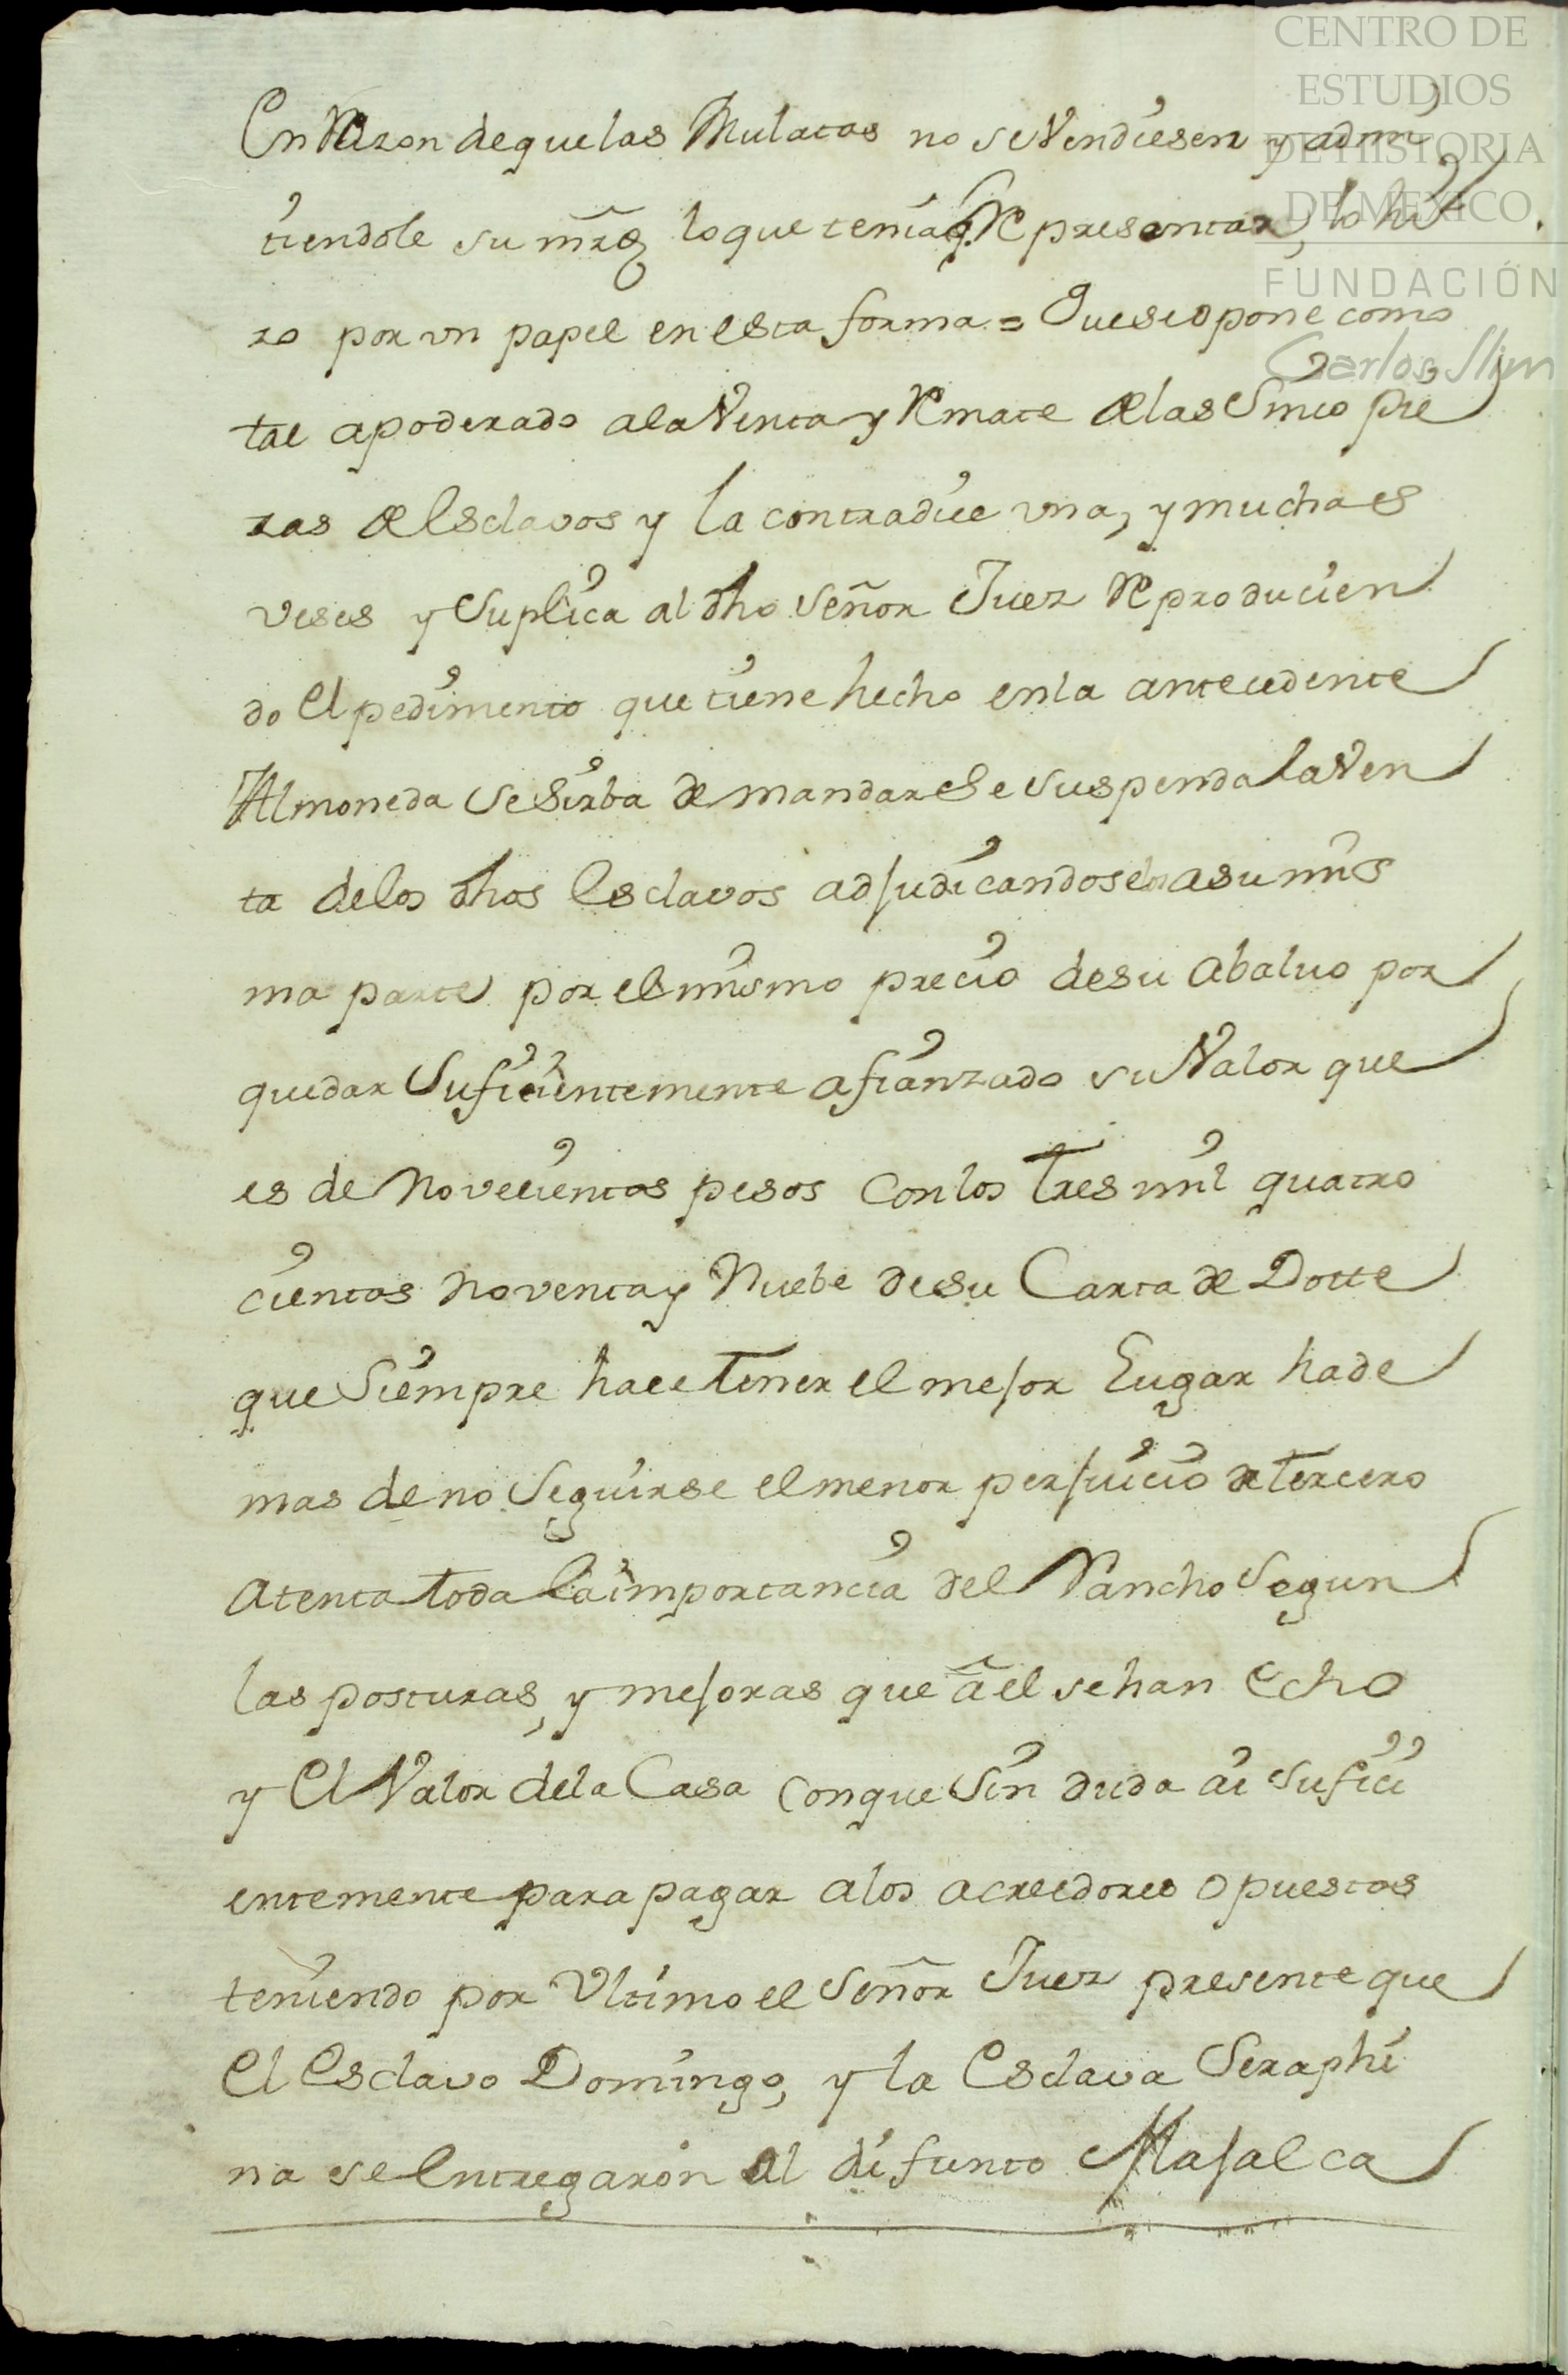 CENTRO DE
ESTUDIOS
DE HISTORIA
DE MEXICO
FUNDACIÓN
Carlos Slim
En Razon de que las Mulatas no se Vendiesen y admi
tiendole su mrd lo que tenia q Representar, lo hi
zo por vn papel en esta forma = Que se opone como
tal apoderado a la Venta y Remate de las Sinco pie
zas de Esclavos y la contradice vna, y muchas
veses y Suplica al dho Señor Juez Reproducien
do El pedimento que tiene hecho en la antecedente
Almoneda se Sirba de mandar Se suspenda la Ven
ta de los dhos Esclavos adjudicandoselos a su mis
ma parte por el mismo precio de su Abaluo por
quedar Suficientemente afianzado su Valor que
es de Novecientos pesos con los tres mil quatro
cientos Noventa y Nuebe de su Carta de Dotte
que Siempre hace tener el mejor Lugar ha de
mas de no Seguirse el menor perjuicio de tercero
Atenta toda la importancia del Rancho Segun
las posturas, y mejoras que â el se han Echo
y El Valor de la Casa con que Sin duda ai sufici
entemente para pagar a los acreedores Opuestos
teniendo por Vltimo el Señor Juez presente que
El Esclavo Domingo, y la Esclava Seraphi
na se Entregaron Al difunto Majalca